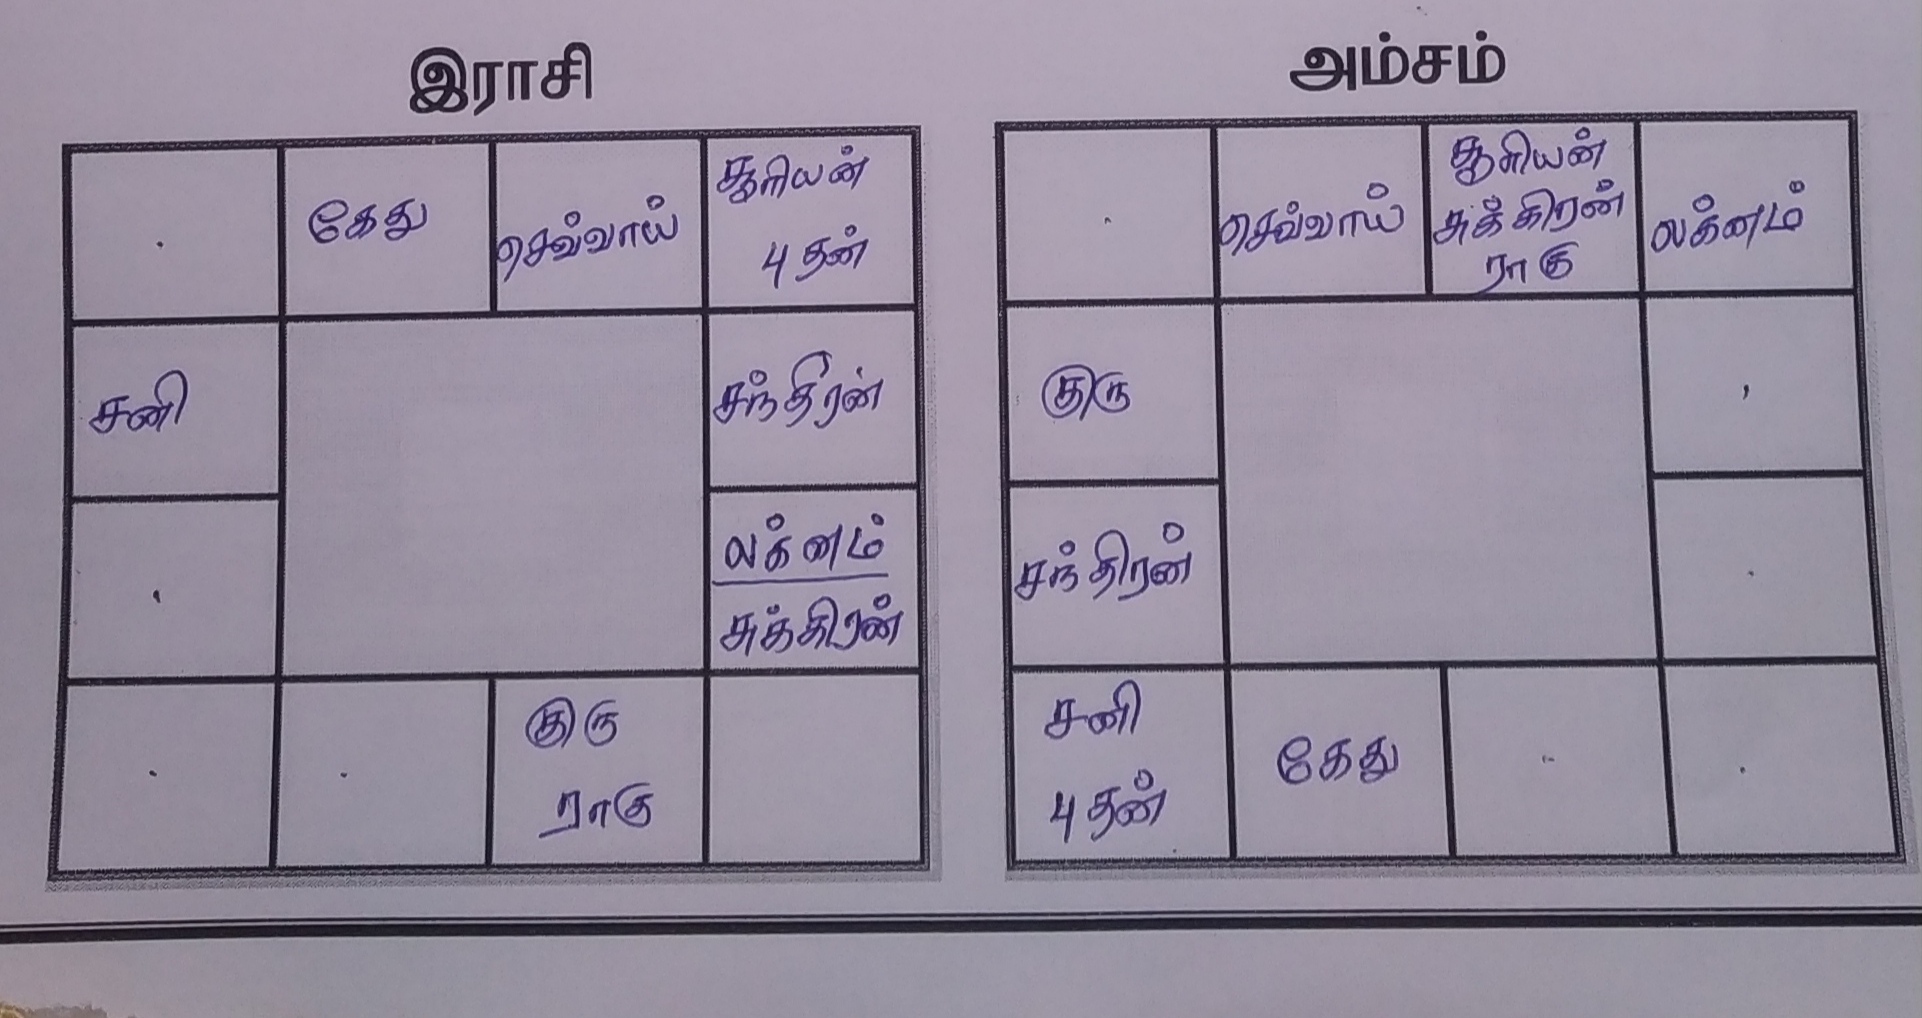 இராசி
கேது
செவ்வாய்
சூரியன்
புதன்
சனி
சந்திரன்
லக்னம்
சுக்கிரன்
குரு
ராகு
அம்சம்
செவ்வாய்
சூரியன்
சுக்கிரன்
ராகு
லக்னம்
குரு
சந்திரன்
சனி
புதன்
கேது